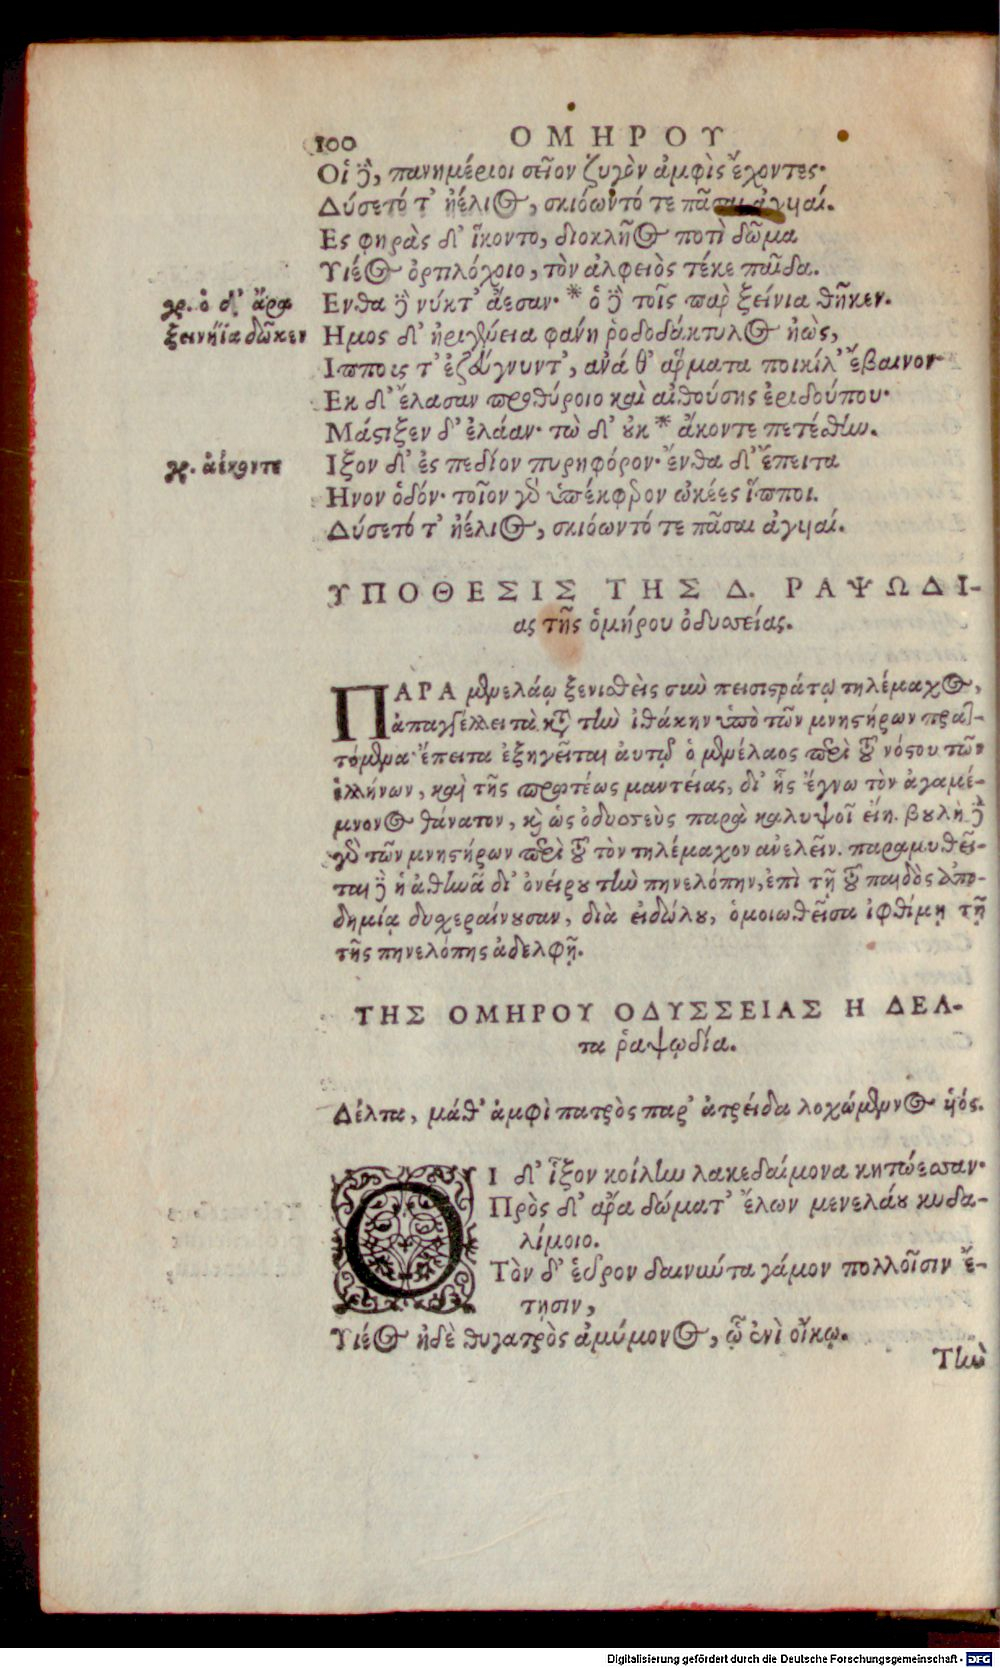 100 ΟΜΗΡΟΥ
Οἱ δὲ, πανημέριοι σεῖον ζυγὸν ἀμφὶς ἔχοντες·
Δύσετό τ' ἠέλιος, σκιόωντό τε πᾶσαι ἀγυιαί.
Ες φηρὰς δ' ἵκοντο, διοκλῆος ποτὶ δῶμα
Υιέος ὀρτιλόχοιο, τὸν ἀλφειὸς τέκε παῖδα.
γρ. ὁ δ' ἄρα
ξεινήϊα δῶκεν
Ενθα δὲ νύκτ' ἄεσαν· * ὁ δὲ τοῖς παρ ξείνια θῆκεν.
Ημος δ' ἠριγένεια φάνη ῥοδοδάκτυλος ἠὼς,
Ιπποις τ' ἐζεύγνυντ', ἀνά θ' ἅρματα ποικίλ' ἔβαινον·
Εκ δ' ἔλασαν προθύροιο καὶ αἰθούσης ἐριδούπου·
Μάστιξεν δ' ἐλάαν· τὼ δ' οὐκ * ἄκοντε πετέσθην.
γρ. ἀέκοντε
Ιξον δ' ἐς πεδίον πυρηφόρον· ἔνθα δ' ἔπειτα
Ηνον ὁδόν· τοῖον γὰρ ὑπέκφερον ὠκέες ἵπποι.
Δύσετό τ' ἠέλιος, σκιόωντό τε πᾶσαι ἀγυιαί.
ΥΠΟΘΕΣΙΣ ΤΗΣ Δ. ΡΑΨΩΔΙ-
ας τῆς ὁμήρου ὀδυσσείας.
ΠΑΡΑ μενελάῳ ξενισθεὶς σὺν πεισιστράτῳ τηλέμαχος,
ἀπαγγέλλει τὰ κατὰ τὴν ἰθάκην ὑπὸ τῶν μνηστήρων πρατ-
τόμενα· ἔπειτα ἐξηγεῖται αὐτῷ ὁ μενέλαος περὶ τοῦ νόστου τῶν
ἑλλήνων, καὶ τῆς πρωτέως μαντείας, δι' ἧς ἔγνω τὸν ἀγαμέ-
μνονος θάνατον, καὶ ὡς ὀδυσσεὺς παρὰ καλυψοῖ εἴη. βουλὴ δὲ
γὰρ τῶν μνηστήρων περὶ τοῦ τὸν τηλέμαχον ἀνελεῖν. παραμυθεῖ-
ται δὲ ἡ ἀθηνᾶ δι' ὀνείρου τὴν πηνελόπην, ἐπὶ τῇ τοῦ παιδὸς ἀπο-
δημίᾳ δυχεραίνουσαν, διὰ εἰδώλου, ὁμοιωθεῖσα ἰφθίμῃ τῇ
τῆς πηνελόπης ἀδελφῇ.
ΤΗΣ ΟΜΗΡΟΥ ΟΔΥΣΣΕΙΑΣ Η ΔΕΛ-
τα ῥαψῳδία.
Δέλτα, μάθ' ἀμφὶ πατρὸς παρ' ἀτρείδα λοχώμενος υἱός.
ΟΙ δ' ἷξον κοίλην λακεδαίμονα κητώεσσαν·
Πρὸς δ' ἄρα δώματ' ἔλων μενελάου κυδα-
λίμοιο.
Τὸν δ' εὗρον δαινύντα γάμον πολλοῖσιν ἔ-
τῃσιν,
Υιέος ἠδὲ θυγατρὸς ἀμύμονος, ᾧ ἐνὶ οἴκῳ.
Τὴν
Digitalisierung gefördert durch die Deutsche Forschungsgemeinschaft - DFG